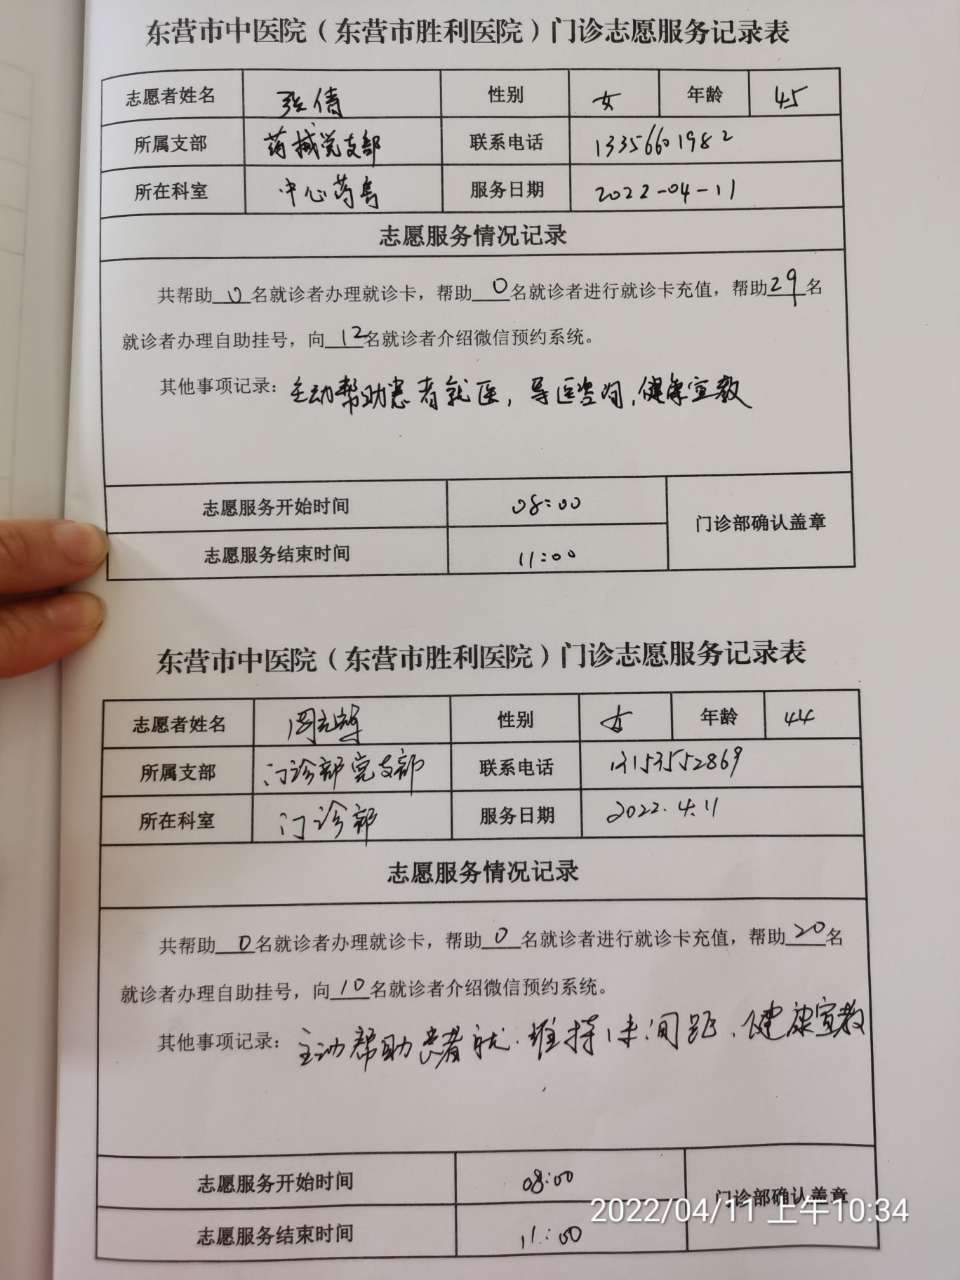 东营市中医院（东营市胜利医院）门诊志愿服务记录表
志愿者姓名 张倩 性别 女 年龄 45
所属支部 药械党支部 联系电话 13356601982
所在科室 中心药房 服务日期 2022-04-11
志愿服务情况记录
共帮助0名就诊者办理就诊卡，帮助0名就诊者进行就诊卡充值，帮助29名
就诊者办理自助挂号，向12名就诊者介绍微信预约系统。
其他事项记录：主动帮助患者就医，导医咨询，健康宣教
志愿服务开始时间 08:00
门诊部确认盖章
志愿服务结束时间 11:00
东营市中医院（东营市胜利医院）门诊志愿服务记录表
志愿者姓名 周 性别 女 年龄 44
所属支部 门诊部党支部 联系电话 13153552869
所在科室 门诊部 服务日期 2022.4.11
志愿服务情况记录
共帮助0名就诊者办理就诊卡，帮助0名就诊者进行就诊卡充值，帮助20名
就诊者办理自助挂号，向10名就诊者介绍微信预约系统。
其他事项记录：主动帮助患者就.维持1米间距.健康宣教
志愿服务开始时间 08:00
门诊部确认盖章
2022/04/11 上午10:34
志愿服务结束时间 11:00